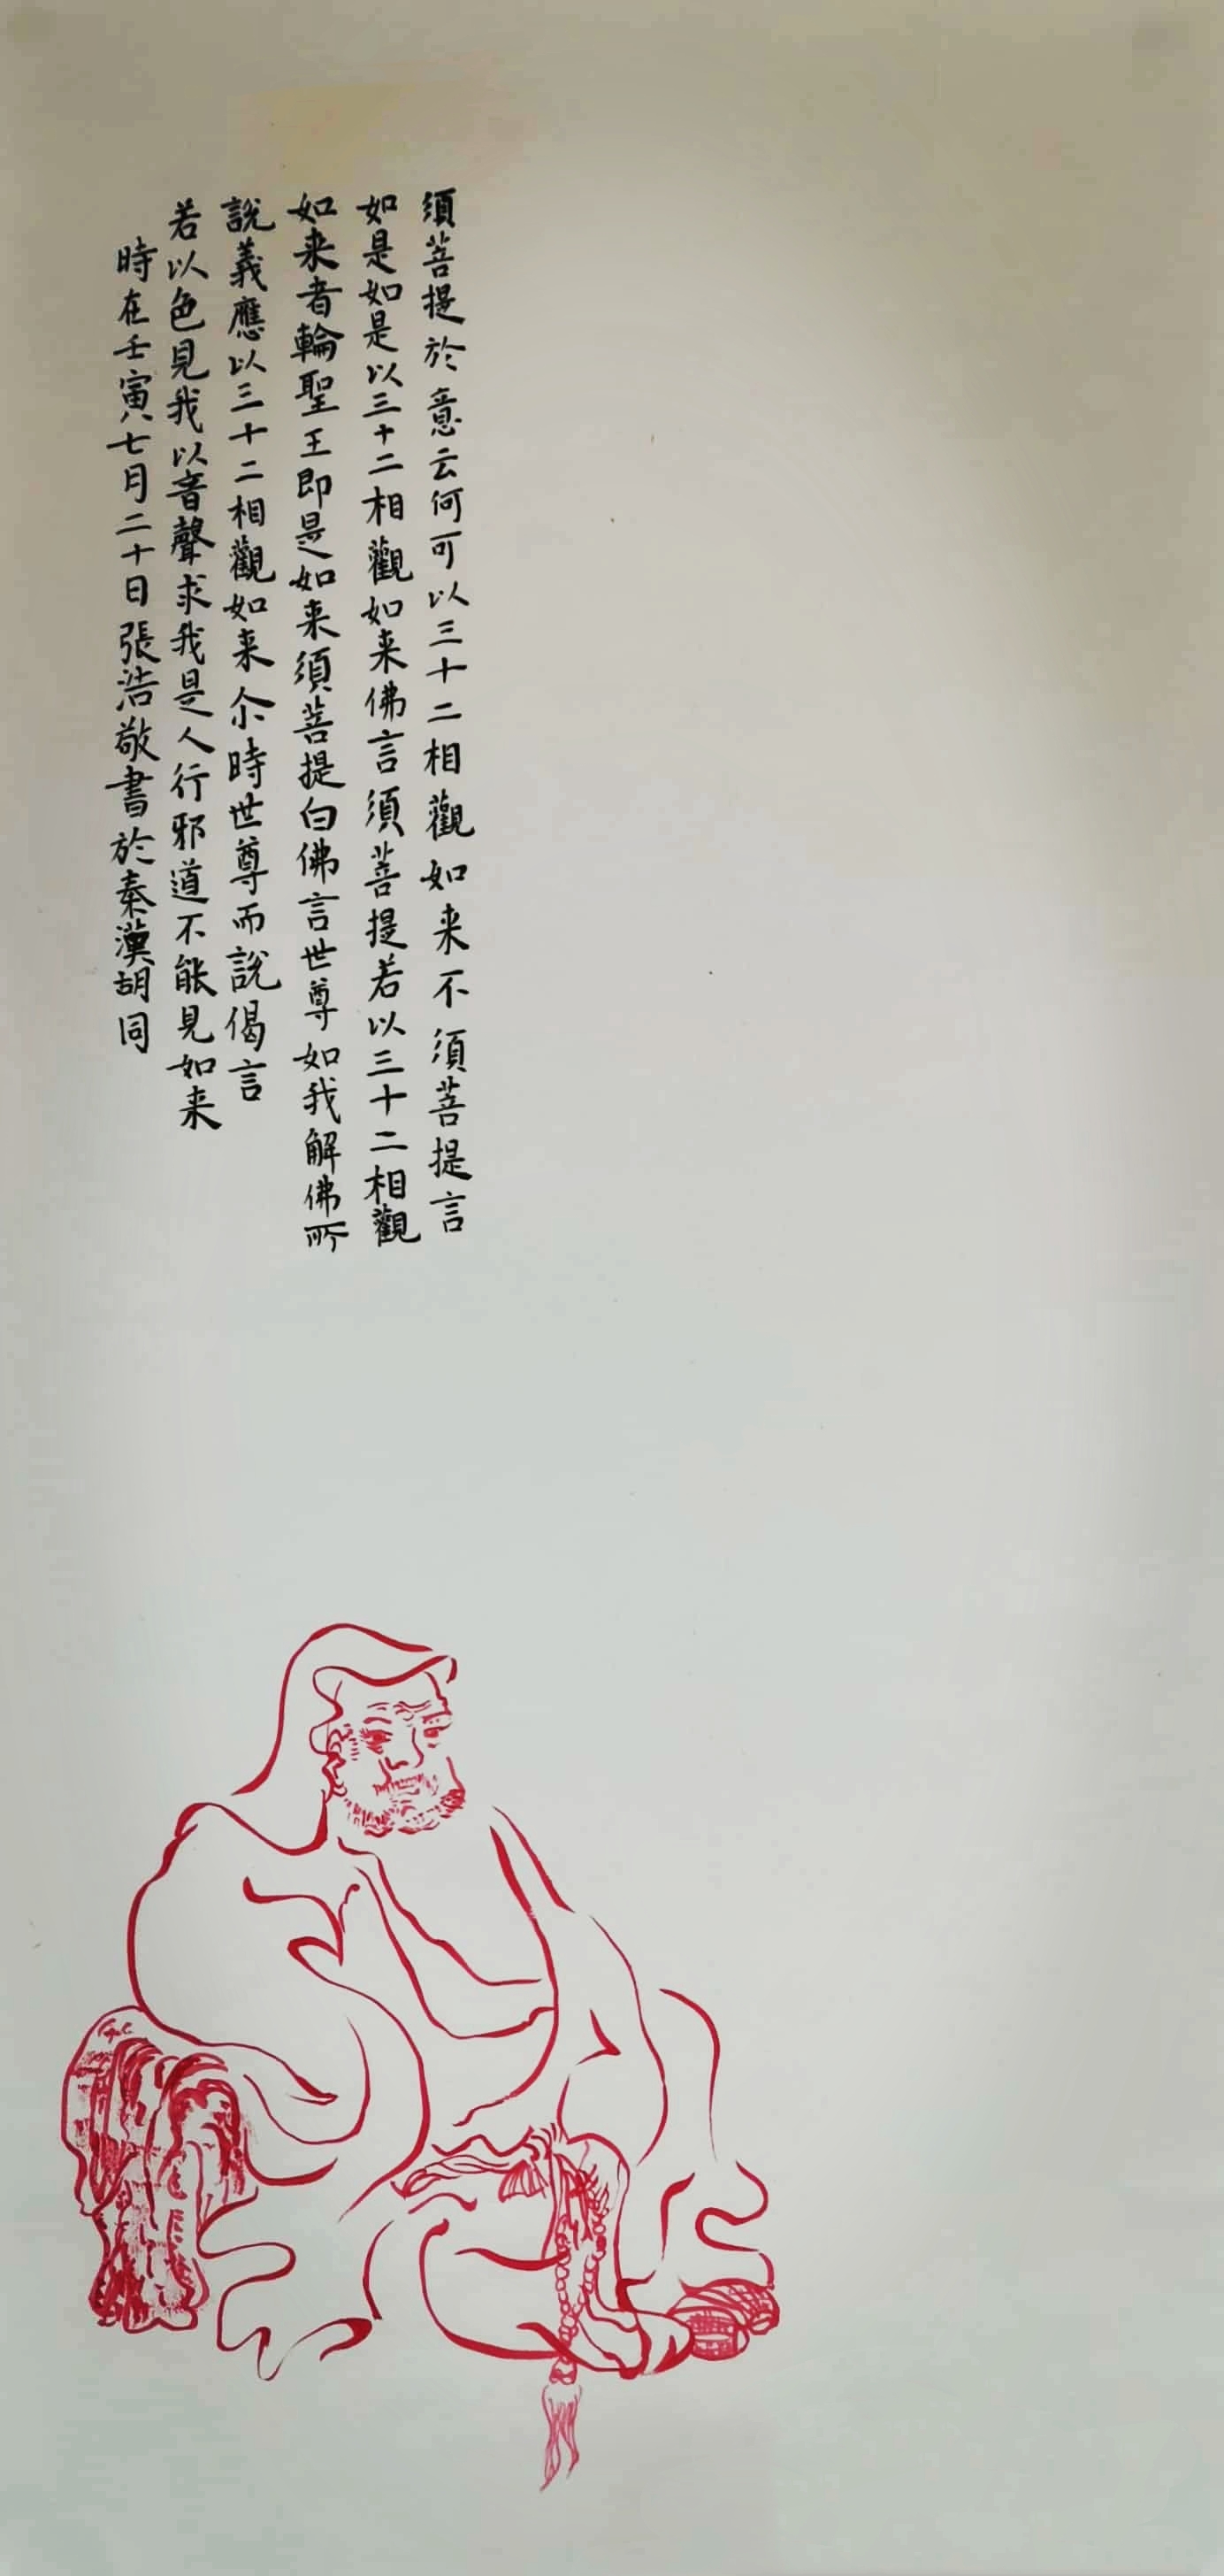 須菩提於意云何可以三十二相觀如来不須菩提言
如是如是以三十二相觀如来佛言須菩提若以三十二相觀
如来者輪聖王即是如来須菩提白佛言世尊如我解佛所
說義應以三十二相觀如来尒時世尊而說偈言
若以色見我以音聲求我是人行邪道不能見如来
時在壬寅七月二十日張浩敬書於秦漢胡同